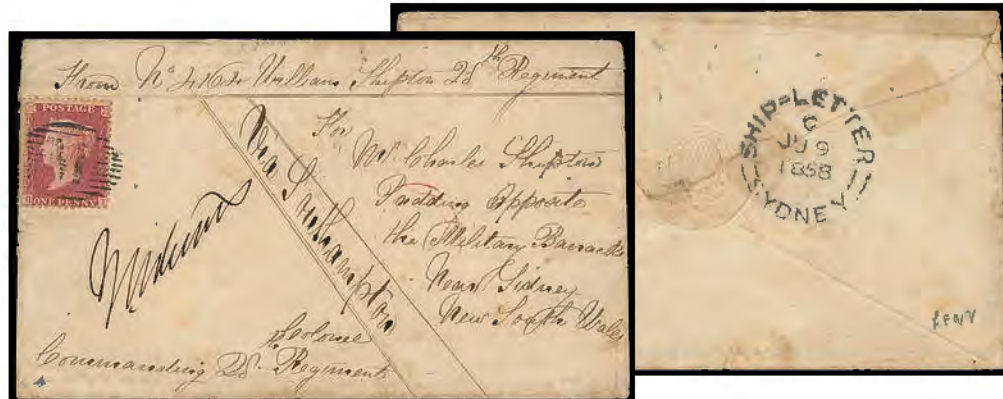 From No William Shipton 28th Regiment
POSTAGE
ONE PENNY
Via Southampton
For
Mr Charles Shipton
Padding Opposite
the Military Barracks
Near Sidney
New South Wales
Colonel
Commanding 28 Regiment
SHIP-LETTER
C
JU 9
1858
SYDNEY